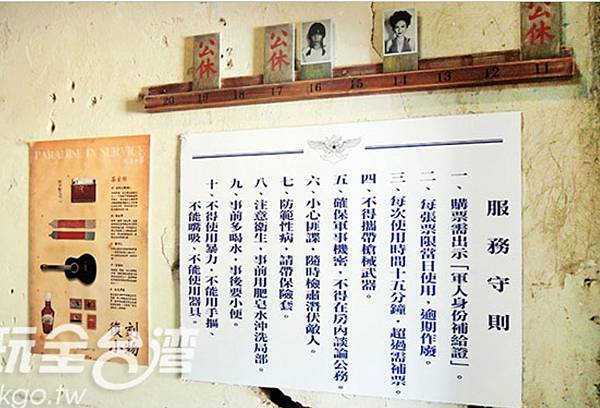 公休
公休
公休
20 19 18 17 16 15 14 13 12 11
PARADISE IN SERVICE
服務守則
一、購票需出示「軍人身份補給證」。
二、每張票限當日使用，逾期作廢。
三、每次使用時間十五分鐘，超過需補票。
四、不得攜帶槍械武器。
五、確保軍事機密，不得在房內談論公務。
六、小心匪諜，隨時檢肅潛伏敵人。
七、防範性病，請帶保險套。
八、注意衛生，事前用肥皂水沖洗局部。
九、事前多喝水，事後要小便。
十、不得使用暴力，不能用手摳、
不能嘴吸、不能使用器具。
復刻
玩全台灣
kgo.tw